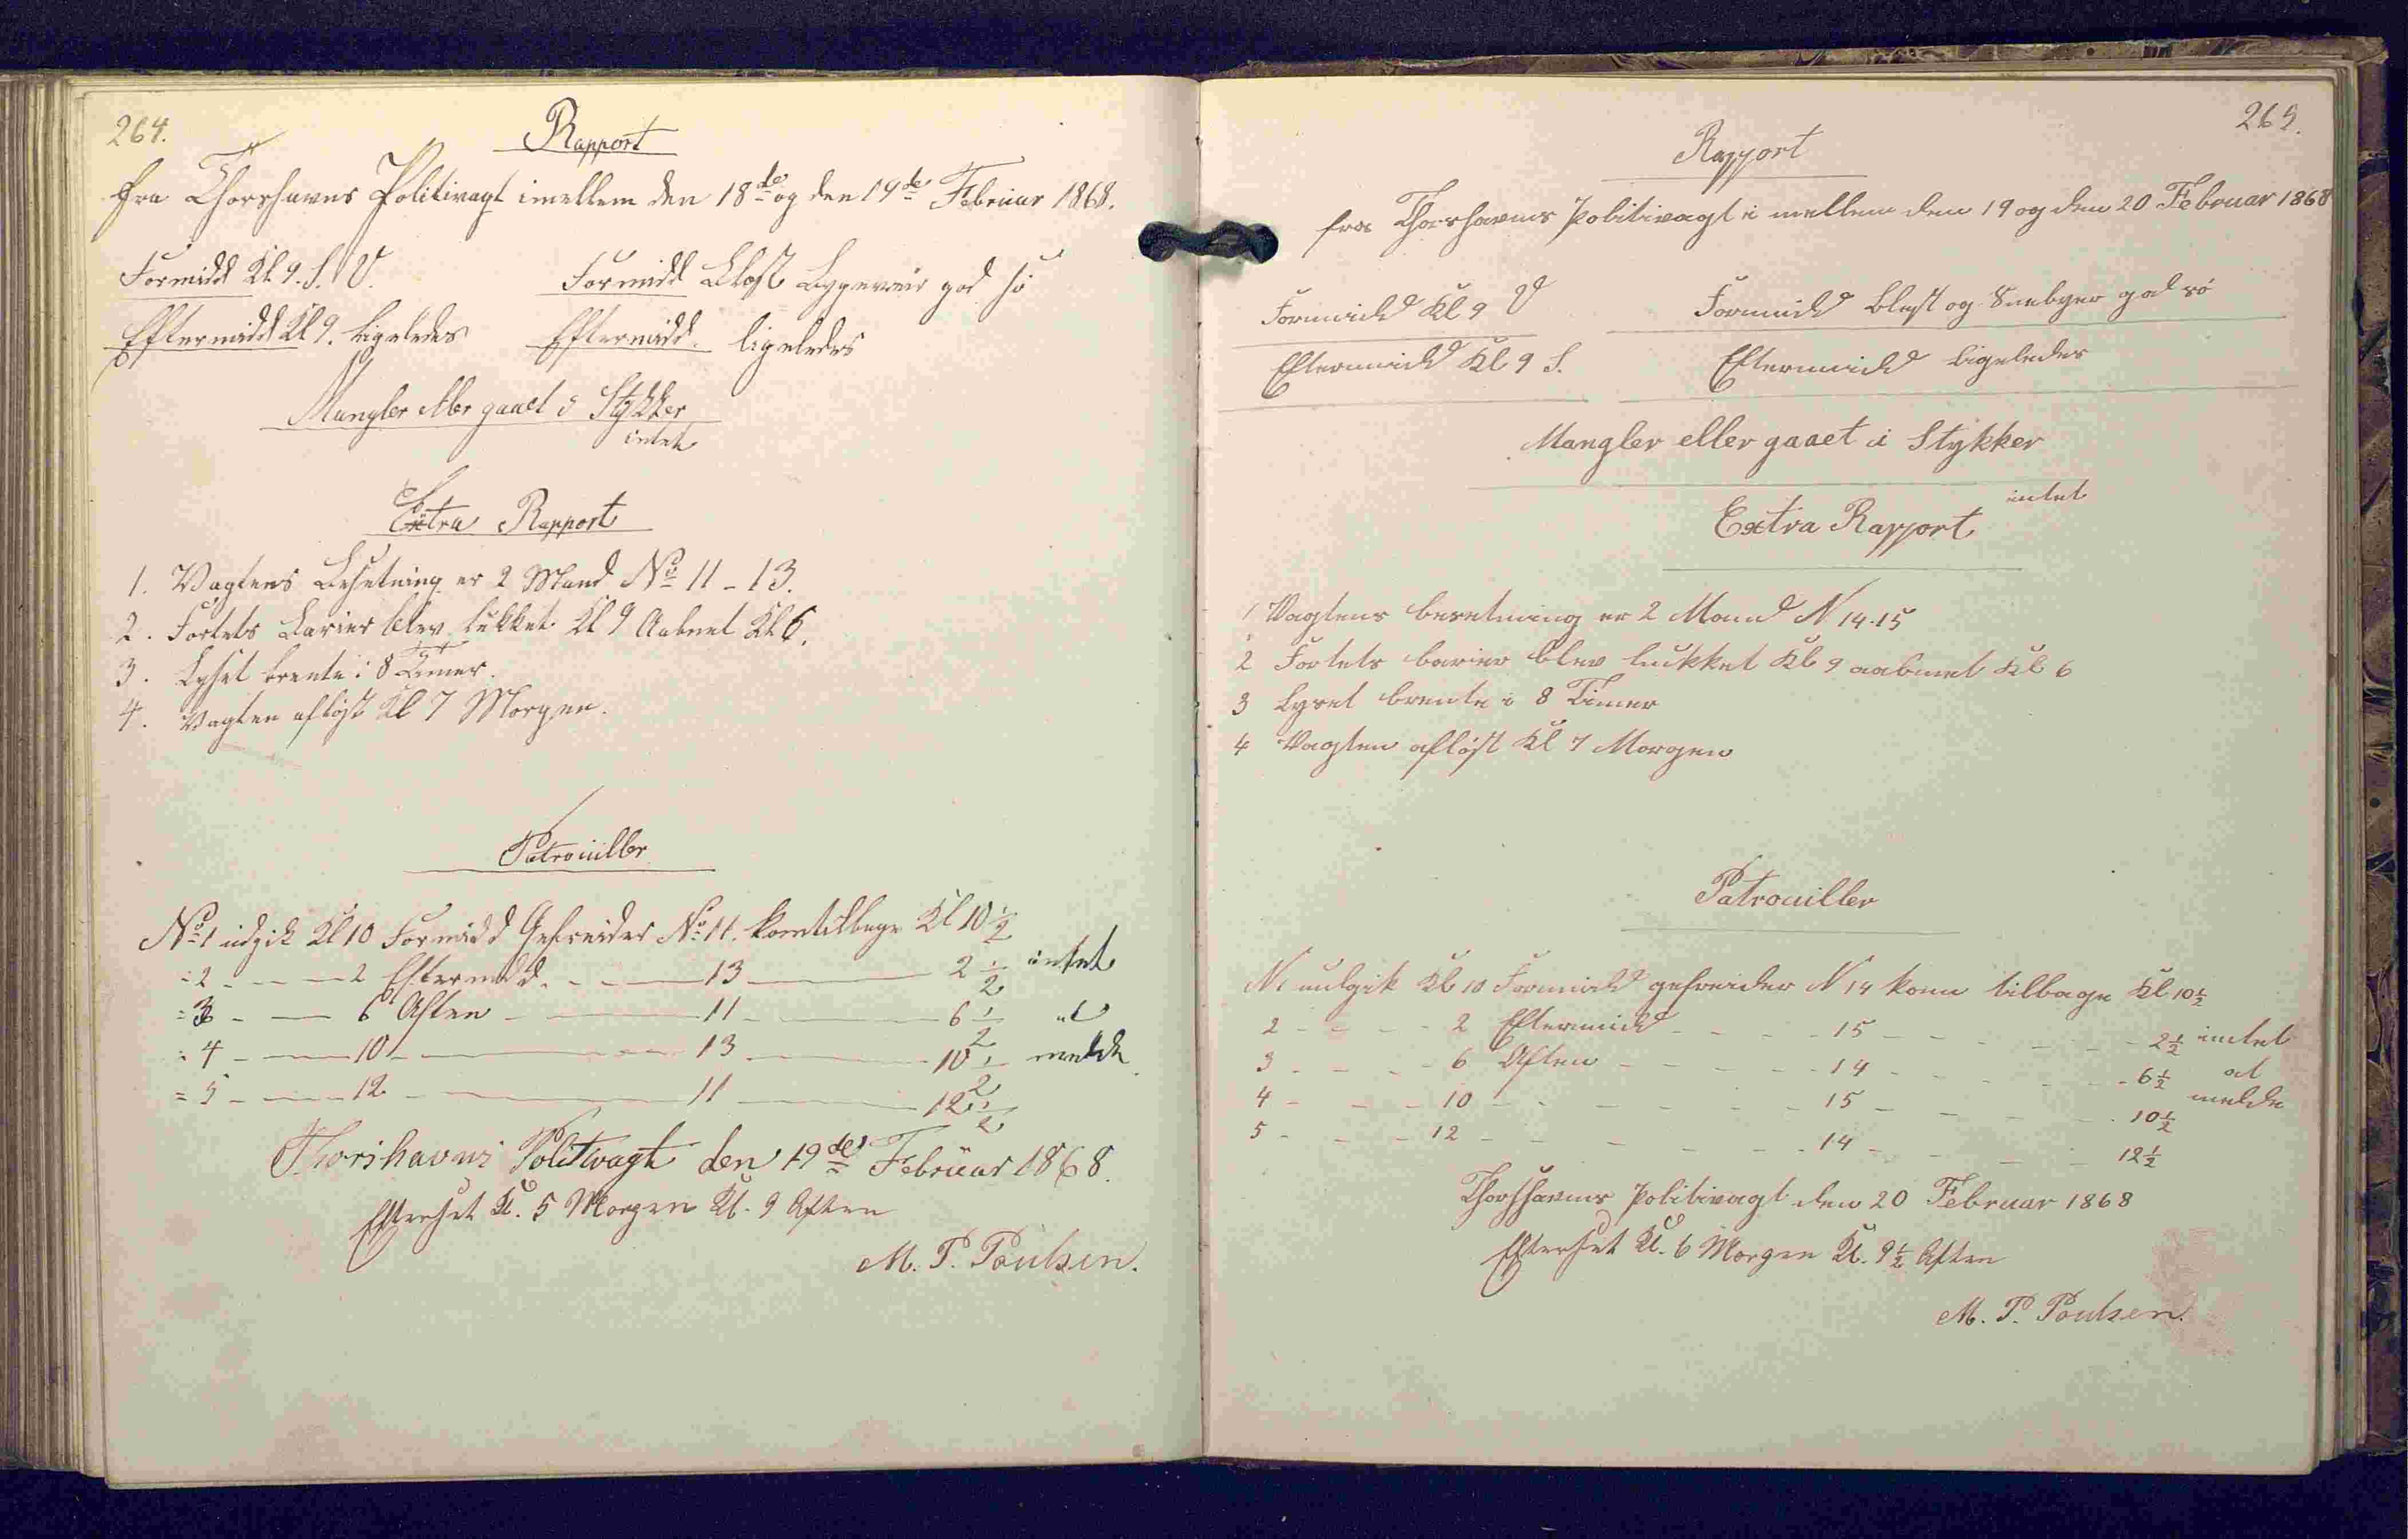 264.
Rapport
fra Thorshavns Politivagt imellem den 18de og den 19de Februar 1868.
Formidd Kl 9. S. V. Formidd Blæst god Sö
Eftermidd Kl 9. ligeledes Eftermidd. ligeledes
Mangler eller gaaet i Stykker
intet
Extra Rapport
1. Vagtens Besetning er 2 Mand No 11 - 13.
2. Fortets Barier blev lukket Kl 9 Aabnet Kl 6.
3. Lyset brente i 8 Timer.
4. Vagten aflöst Kl 7 Morgen.
Patrouiller
No 1 udgik Kl 10 Formidd Gefreider No 11. kom tilbage Kl 10 1/2
=2 - - - 2 Eftermidd. - - 13 - 2 1/2 intet
=3 - - 6 Aften - - 11 - 6 1/2 at
=4 - - 10 - - 13 - 10 1/2 melde
=5 - - 12 - - 11 - 12 1/2
Thorshavns Politivagt den 19de Februar 1868.
Efterset Kl. 5 Morgen Kl. 9 Aften
M. P. Poulsen.
265.
Rapport
fra Thorshavns Politivagt i mellem den 19 og den 20 Februar 1868
Formidd Kl 9 V Formidd blæst og Snebyer god sö
Eftermidd Kl 9 S. Eftermidd ligeledes
Mangler eller gaaet i Stykker
intet
Extra Rapport
1 Vagtens besetning er 2 Mand N 14-15
2 Fortets barier blev lukket Kl 9 aabnet Kl 6
3 Lyset brente i 8 Timer
4 Vagten aflöst Kl 7 Morgen
Patrouiller
N1 uudgik Kl 10 Formidd gefreider N 14 kom tilbage Kl 10 1/2
2 - - - - 2 Eftermidd - - - - 15 - - - - - - 2 1/2 intet
3 - - - - 6 Aften - - - - - 14 - - - - - - 6 1/2 at
4 - - - 10 - - - - - - 15 - - - - - 10 1/2 melde
5 - - - 12 - - - - - - 14 - - - - - 12 1/2
Thorshavns Politivagt den 20 Februar 1868
Efterset Kl. 6 Morgen Kl. 9 1/2 Aften
M. P. Poulsen.